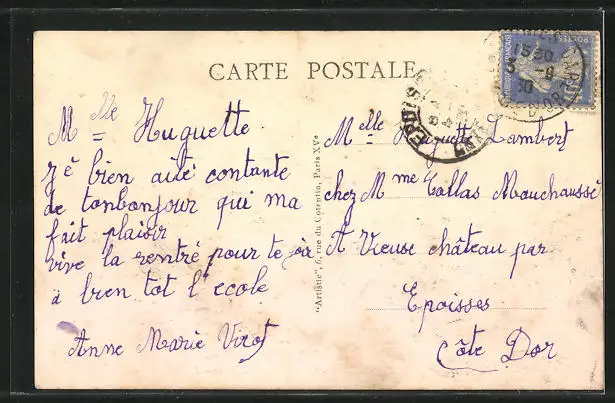 CARTE POSTALE
Mlle Huguette
j'é bien aité contante
de tonbonjour qui ma
fait plaisir
vive la rentré pour te
a bien tot l'ecole
Anne Marie Virot
"Artistic", 6, rue du Cotentin, Paris XVe
Mlle Huguette Lambert
chez Mme Collas Mouchaussé
A Vieux château par
Epoisses
Côte Dor
15 30
3 - 9
30
POSTES